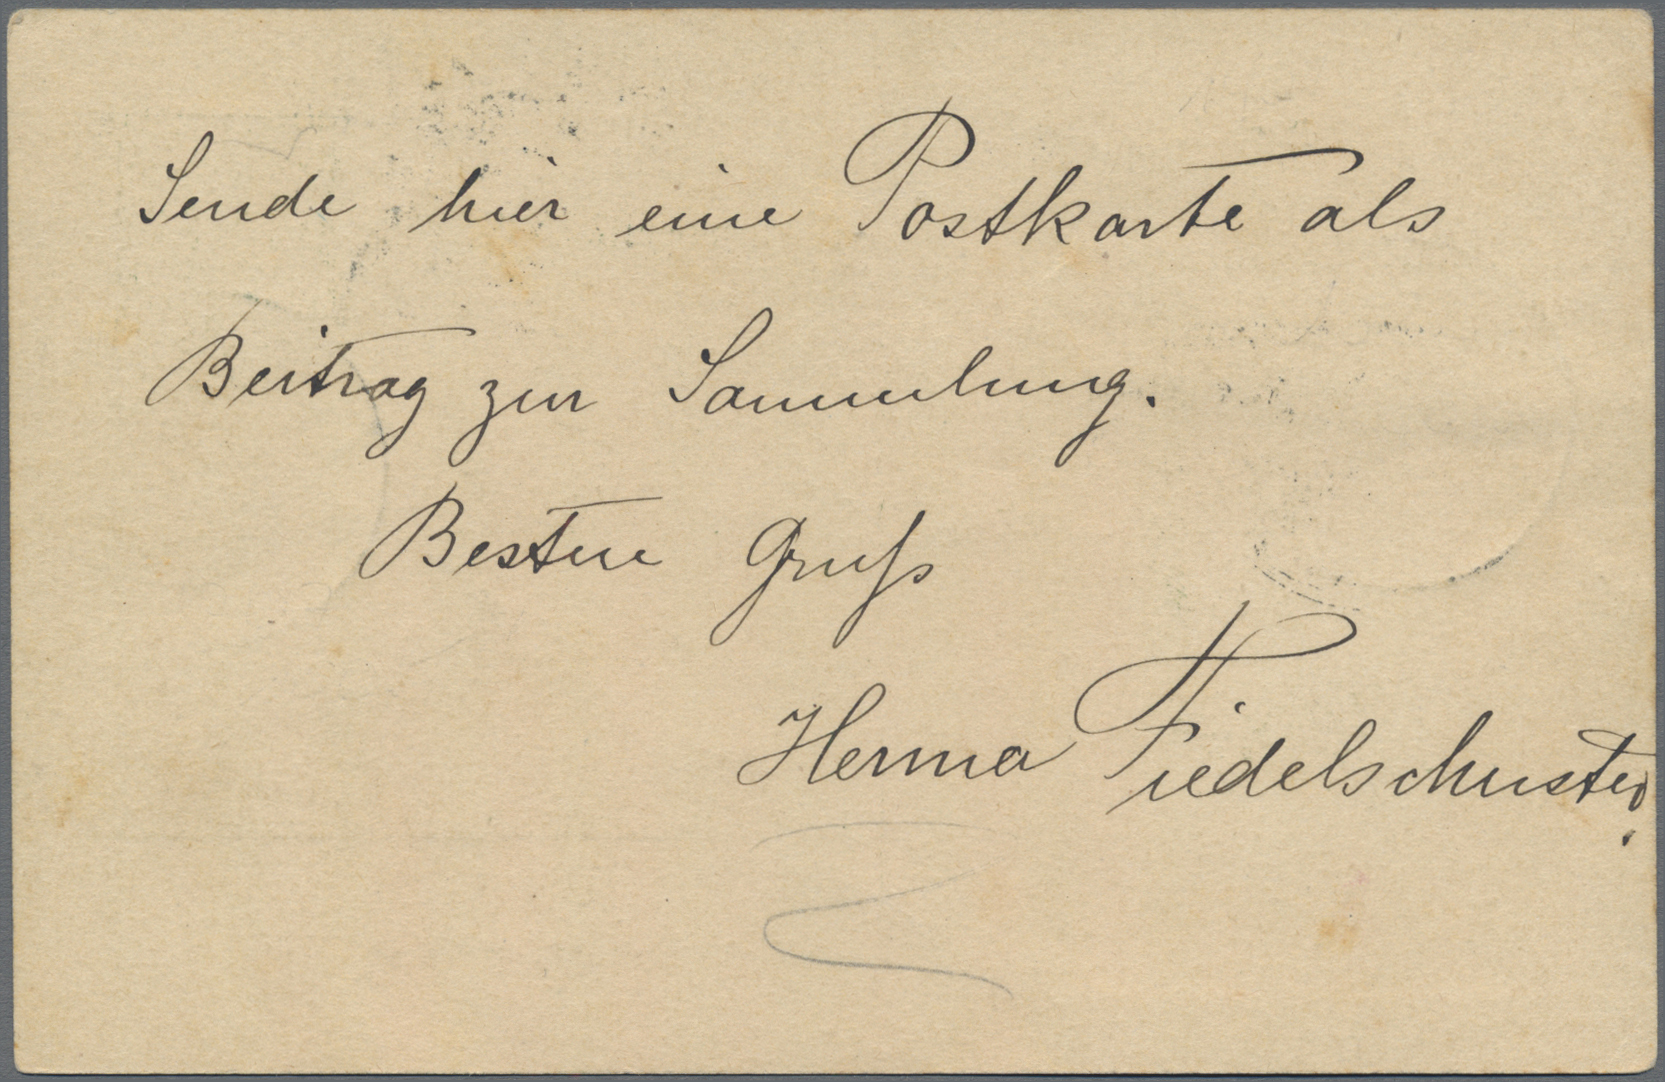 Sende hier eine Postkarte als
Beitrag zur Sammlung.
Besten Gruß
Herma Fiedelschuster.